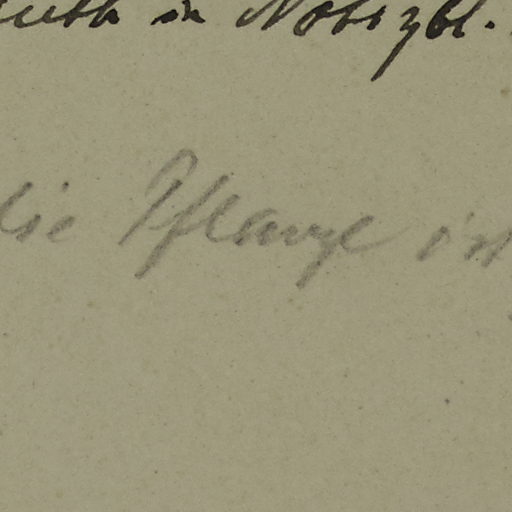 in Notizbl.
die Pflanze ist